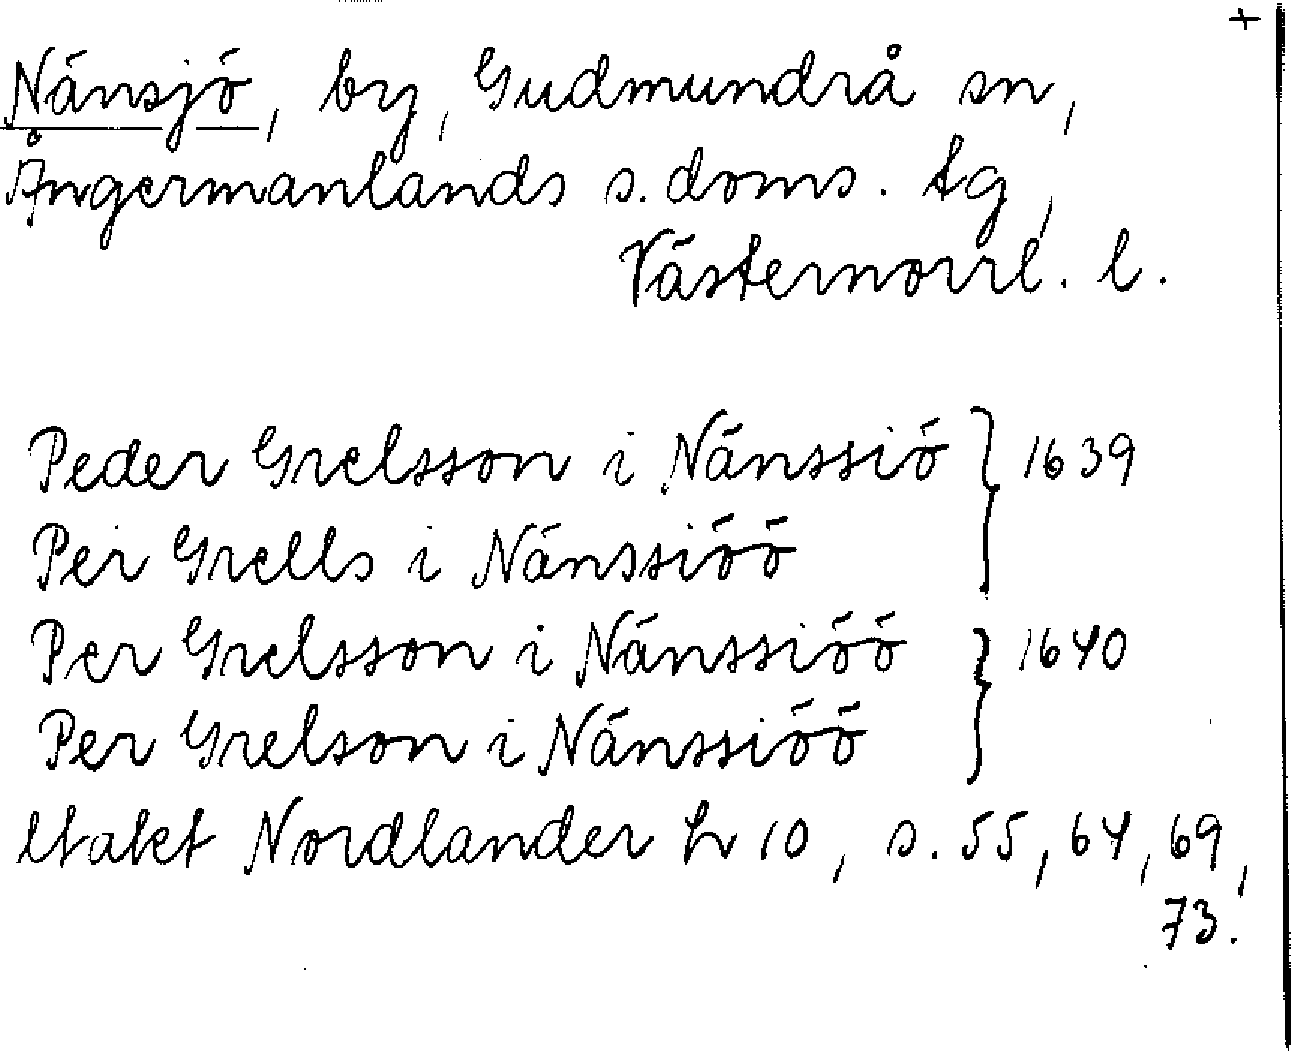 +
Nänsjö, by, Gudmundrå sn,
Ångermanlands s. doms. tg,
Västernorrl. l.
Peder Grelsson i Nänssiö } 1639
Per Grells i Nänssiöö
Per Grelsson i Nänssiöö } 1640
Per Grelson i Nänssiöö
Utakt Nordlander h 10, s. 55, 64, 69,
73.